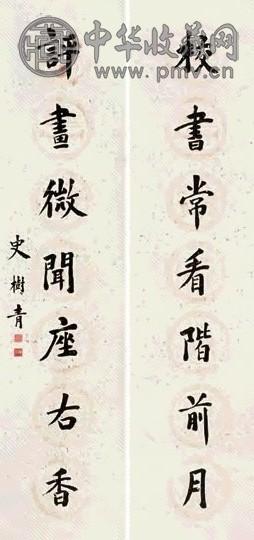 中华收藏网
www.pmv.cn
校書常看階前月
評畫微聞座右香
史樹青